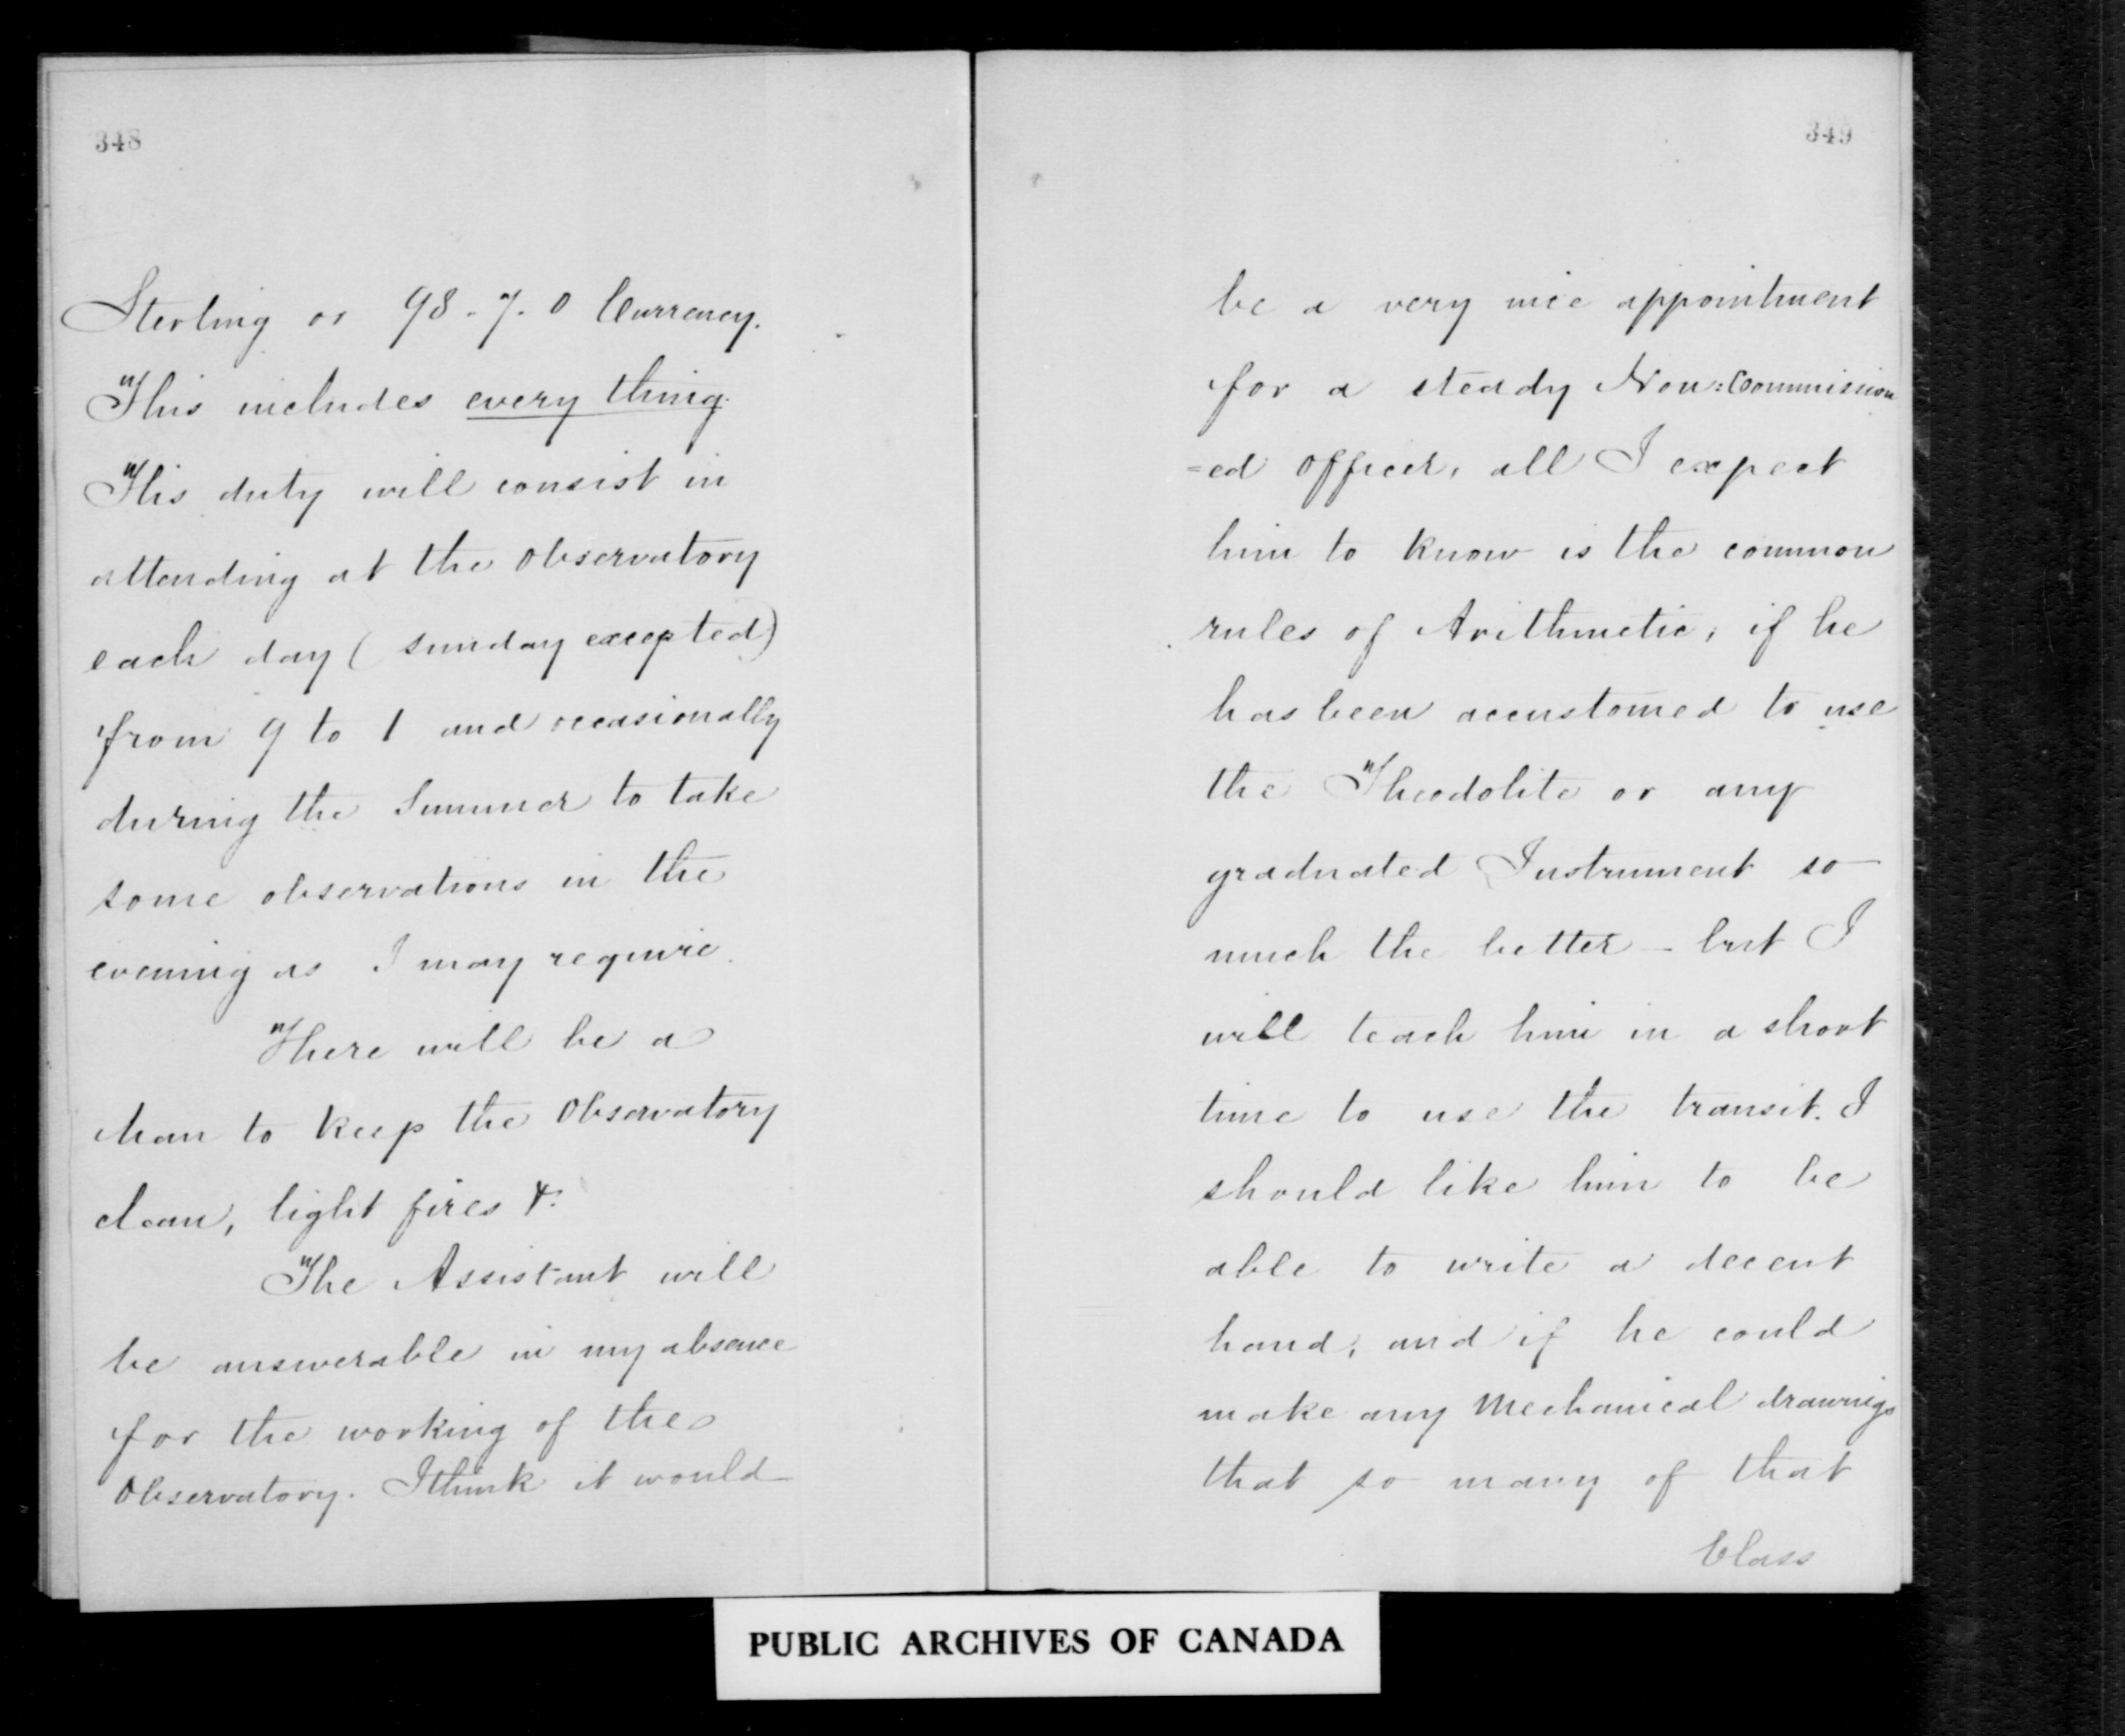 348
Sterling or 98-7-0 Currency.
This includes every thing.
His duty will consist in
attending at the Observatory
each day (Sunday excepted)
from 9 to 1 and occasionally
during the Summer to take
some observations in the
evening as I may require.
There will be a
man to keep the Observatory
clean, light fires &c.
The Assistant will
be answerable in my absence
for the working of the
Observatory. I think it would
349
be a very nice appointment
for a steady Non:Commission
=ed Officer, all I expect
him to know is the common
rules of Arithmetic; if he
has been accustomed to use
the Theodolite or any
graduated Instrument so
much the better - but I
will teach him in a short
time to use the transit. I
should like him to be
able to write a decent
hand, and if he could
make any Mechanical drawings
that so many of that
Class
PUBLIC ARCHIVES OF CANADA